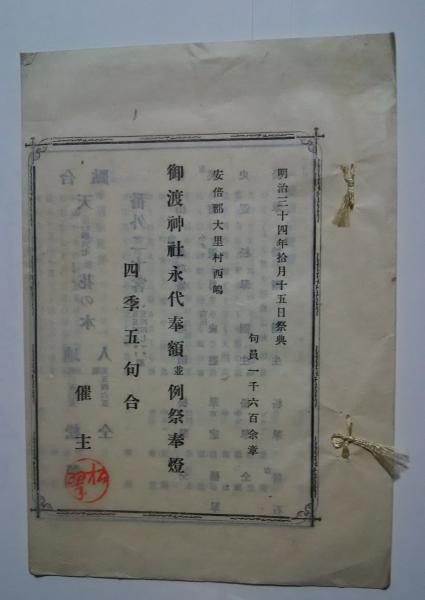 明治三十四年拾月十五日祭典
句員一千六百余章
安倍郡大里村西嶋
御渡神社永代奉額並例祭奉燈
四季五句合
催主